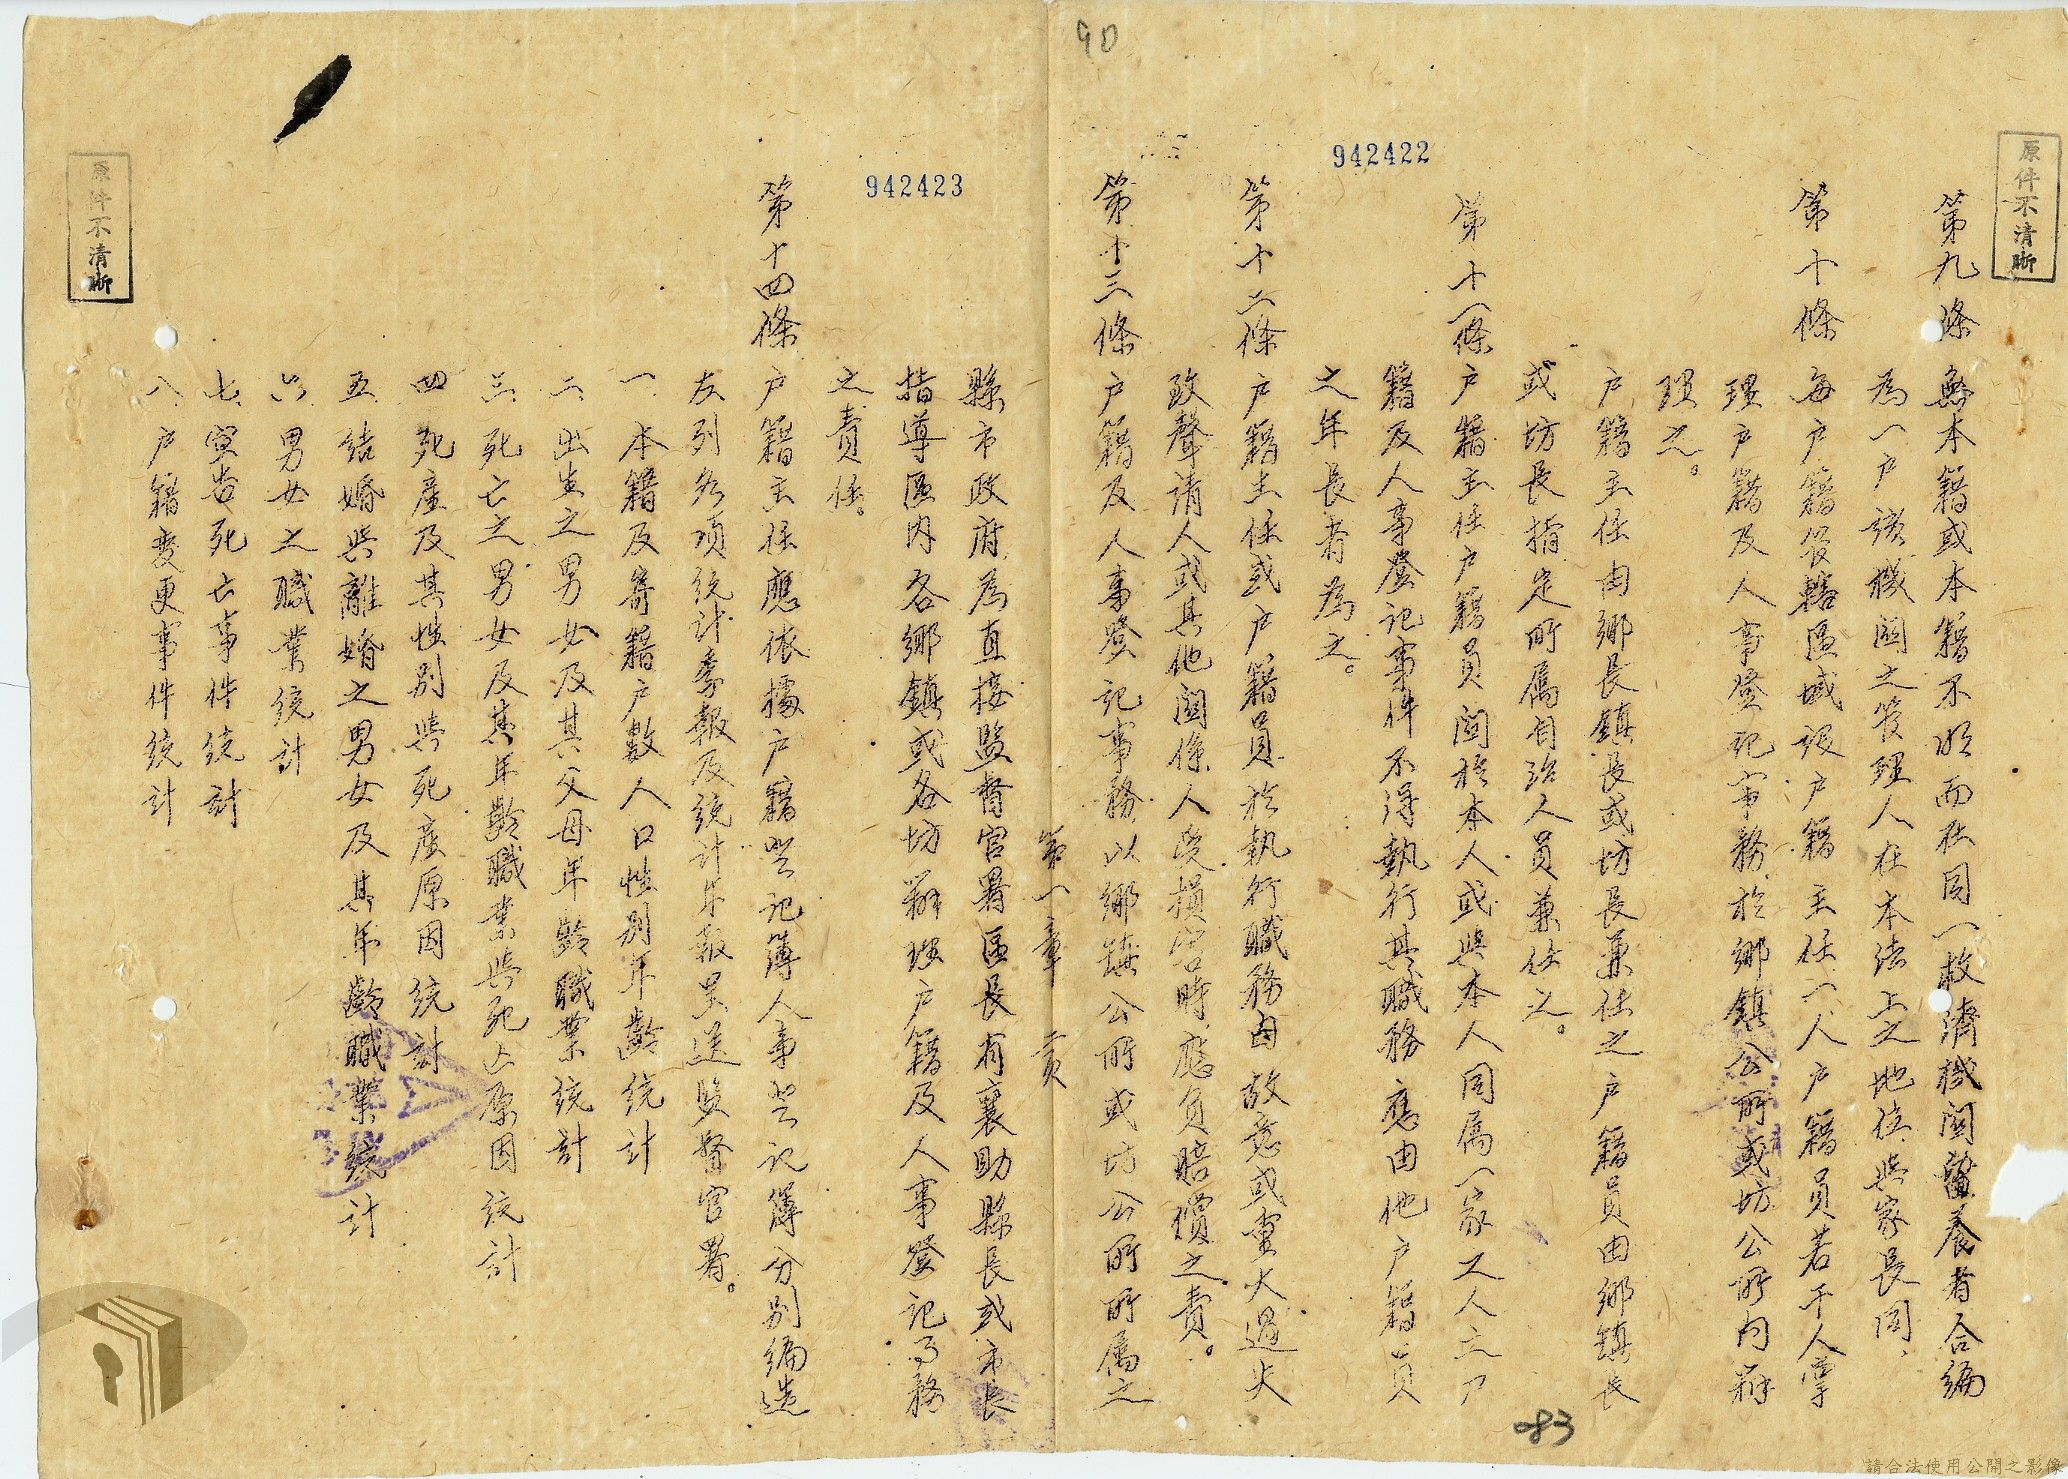 90
942422
原件不清晰
第九條 無本籍或本籍不明而在同一救濟機關留養者合編
為一戶該機關之管理人在本法上之地位與家長同、
第十條 每戶籍管轄區域設戶籍主任一人戶籍員若干人掌
理戶籍及人事登記事務於鄉鎮公所或坊公所內辦
理之。
戶籍主任由鄉長鎮長或坊長兼任之戶籍員由鄉鎮長
或坊長指定所屬自治人員兼任之。
第十一條 戶籍主任戶籍員關於本人或與本人同屬一家之人之戶
籍及人事登記事件不得執行其職務應由他戶籍員
之年長者為之。
第十二條 戶籍主任或戶籍員於執行職務因故意或重大過失
致聲請人或其他關係人受損害時應負賠償之責。
第十三條 戶籍及人事登記事務以鄉鎮公所或坊公所所屬之
第一章 二頁
83
942423
縣市政府為直接監督官署區長有襄助縣長或市長
指導區內各鄉鎮或各坊辦理戶籍及人事登記事務
之責任。
第十四條 戶籍主任應依據戶籍登記簿人事登記簿分別編造
左列各項統計季報及統計年報呈送監督官署。
一、本籍及寄籍戶數人口性別年齡統計
二、出生之男女及其父母年齡職業統計
三、死亡之男女及其年齡職業與死亡原因統計
四、死產及其性別與死產原因統計
五、結婚與離婚之男女及其年齡職業統計
六、男女之職業統計
七、宣告死亡事件統計
八、戶籍變更事件統計
原件不清晰
請合法使用公開之影像